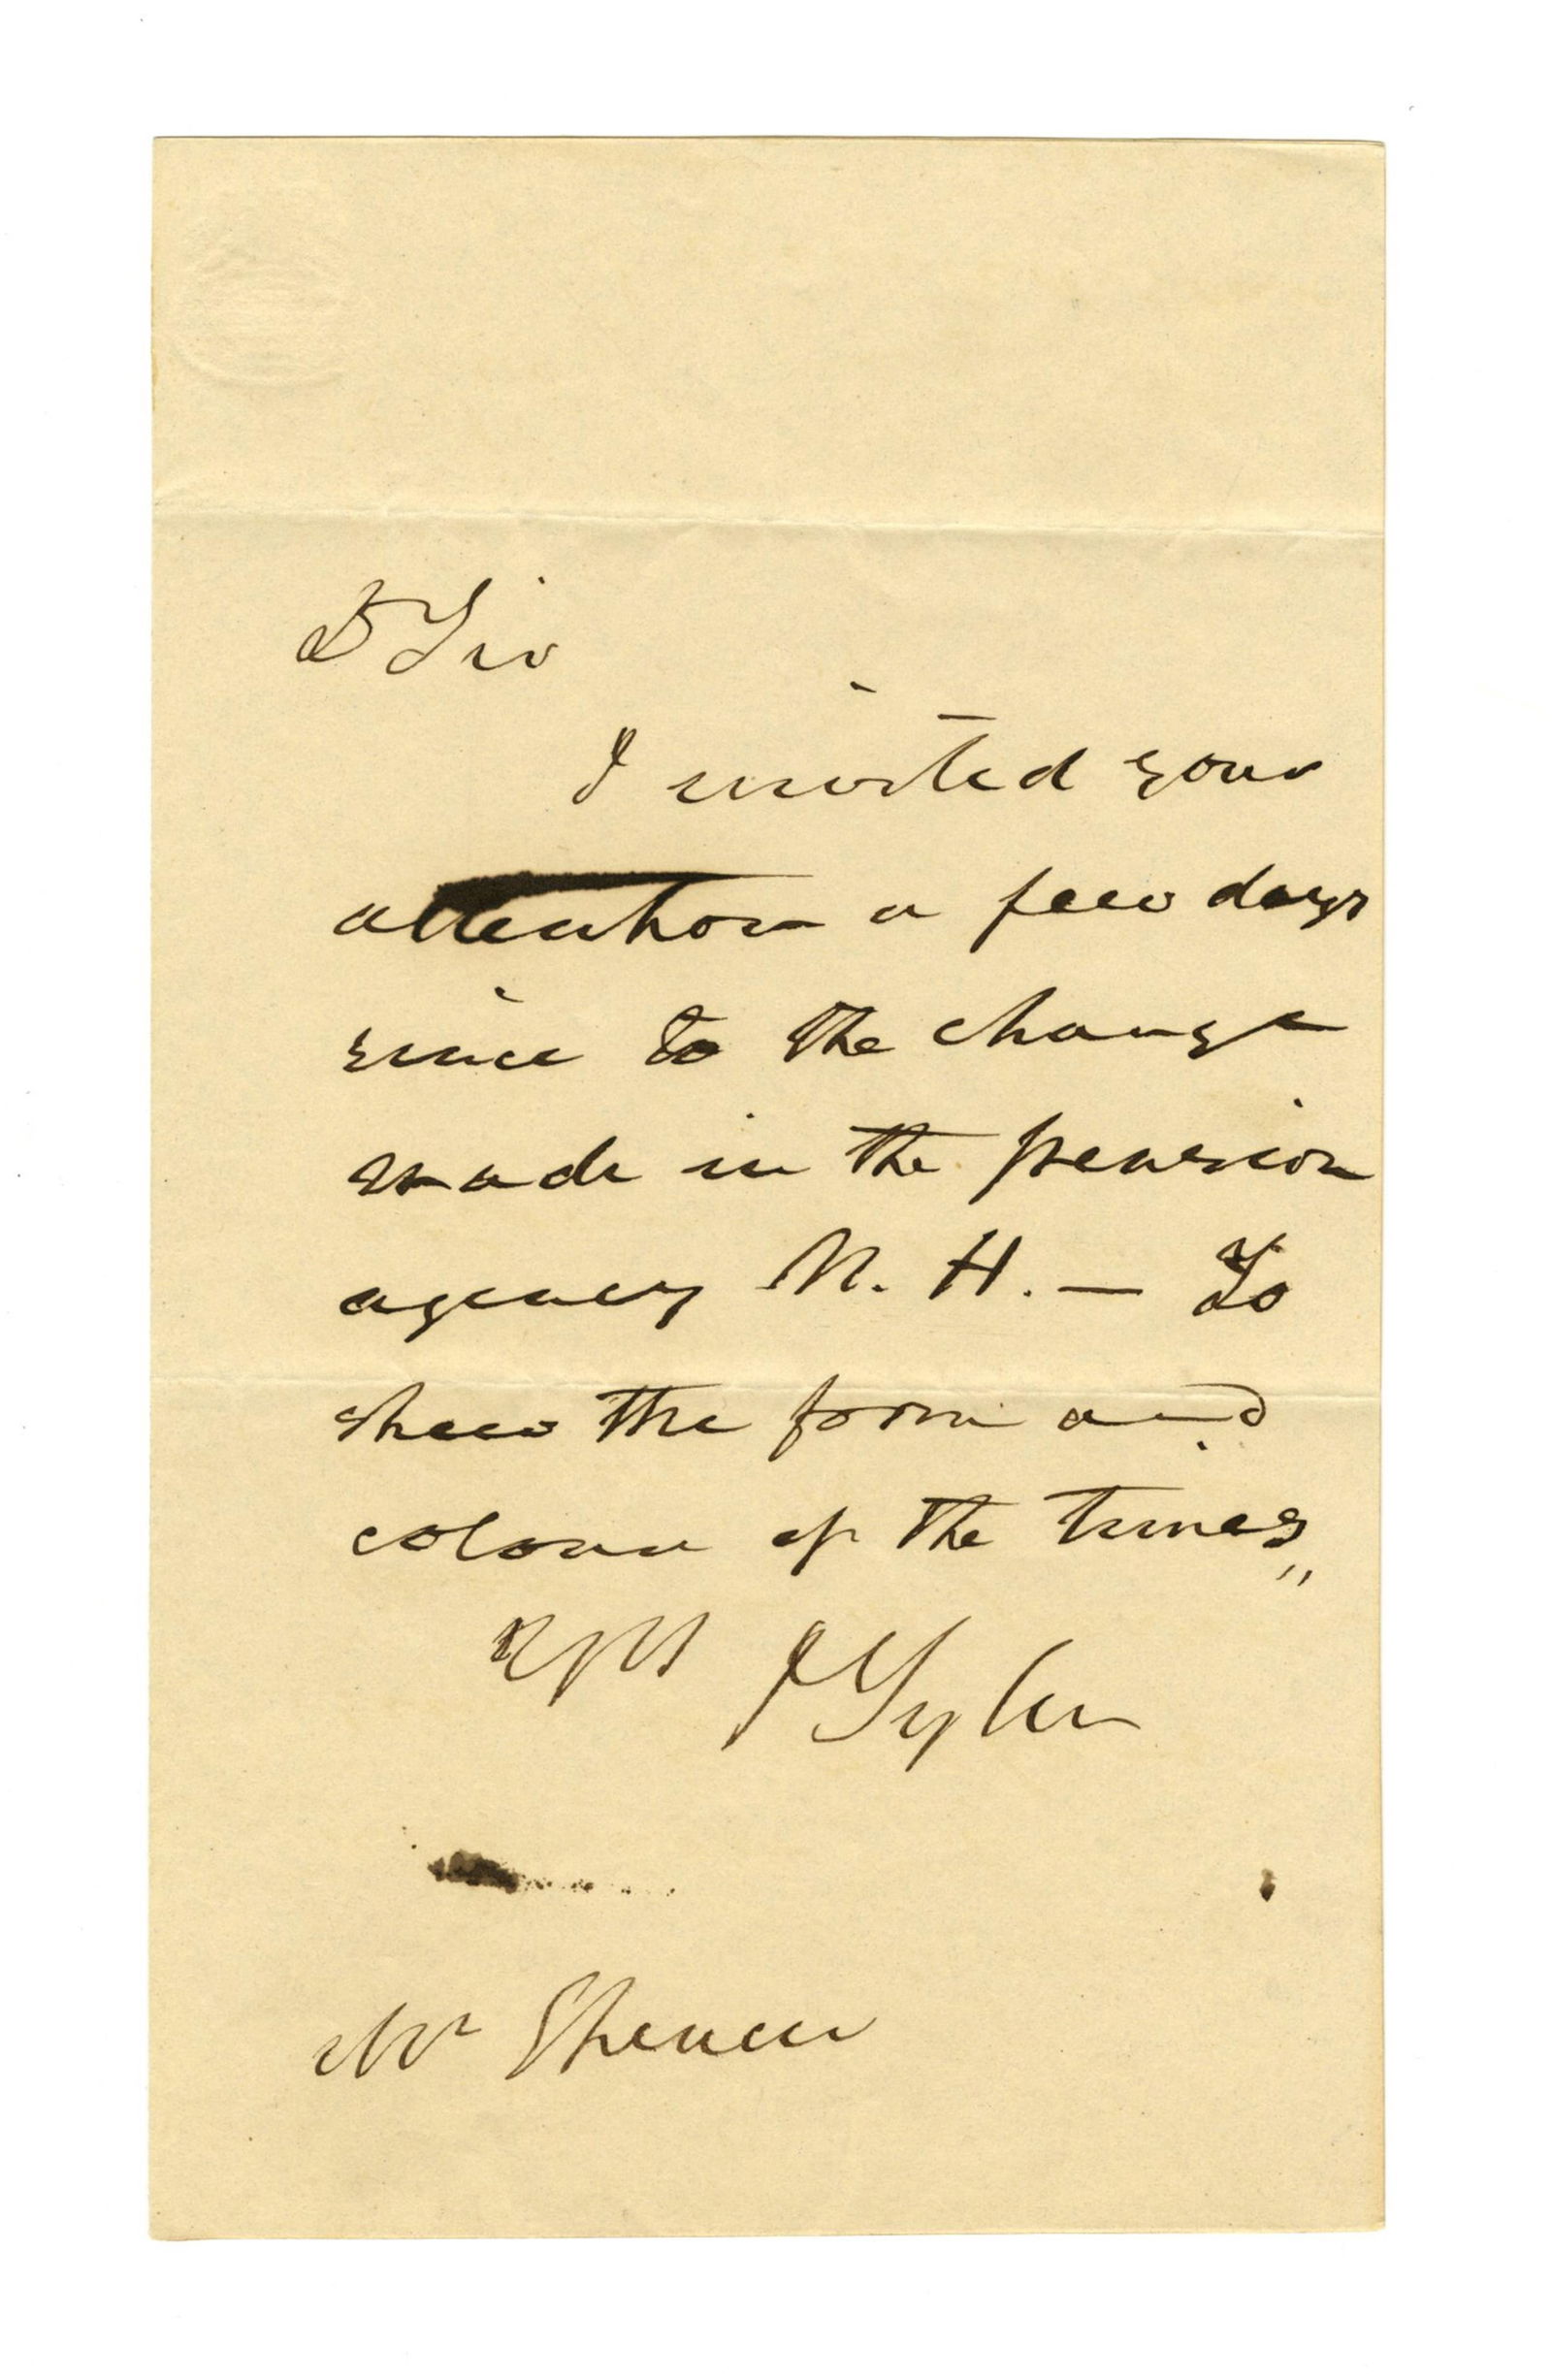 D Sir
I invited your
attention a few days
since to the change
made in the pension
agency N. H. — To
shew the form and
colour of the times
J Tyler
Mr Spencer